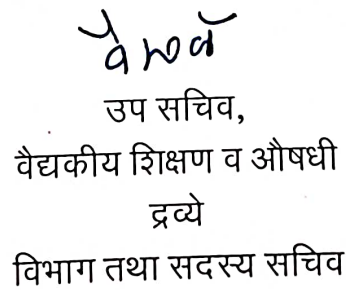 उप सचिव,
वैद्यकीय शिक्षण व औषधी
द्रव्ये
विभाग तथा सदस्य सचिव